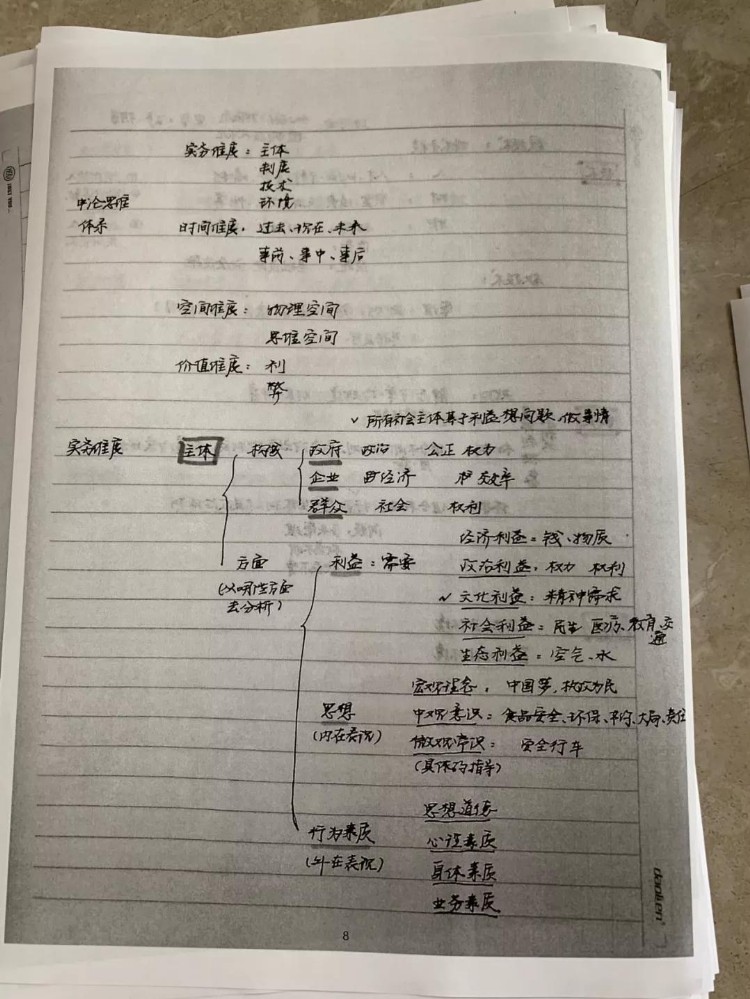 实务维度：主体
制度
技术
申论思维 环境
体系 时间维度：过去、现在、未来
事前、事中、事后
空间维度：物理空间
思维空间
价值维度：利
弊
✓ 所有社会主体基于利益想问题、做事情
实务维度 主体 构成 政府 政治 公正 权力
企业 经济 效率
群众 社会 权利
经济利益：钱、物质
方面 利益：需要 政治利益：权力 权利
(从哪些方面 ✓ 文化利益：精神需求
去分析) 社会利益：民生 医疗、教育、交
通
生态利益：空气、水
宏观理念：中国梦、执政为民
思想 中观意识：食品安全、环保、大局、责任
(内在表现) 微观常识：安全行车
(具体的指导)
思想道德
行为素质 心理素质
(外在表现) 身体素质
业务素质
8